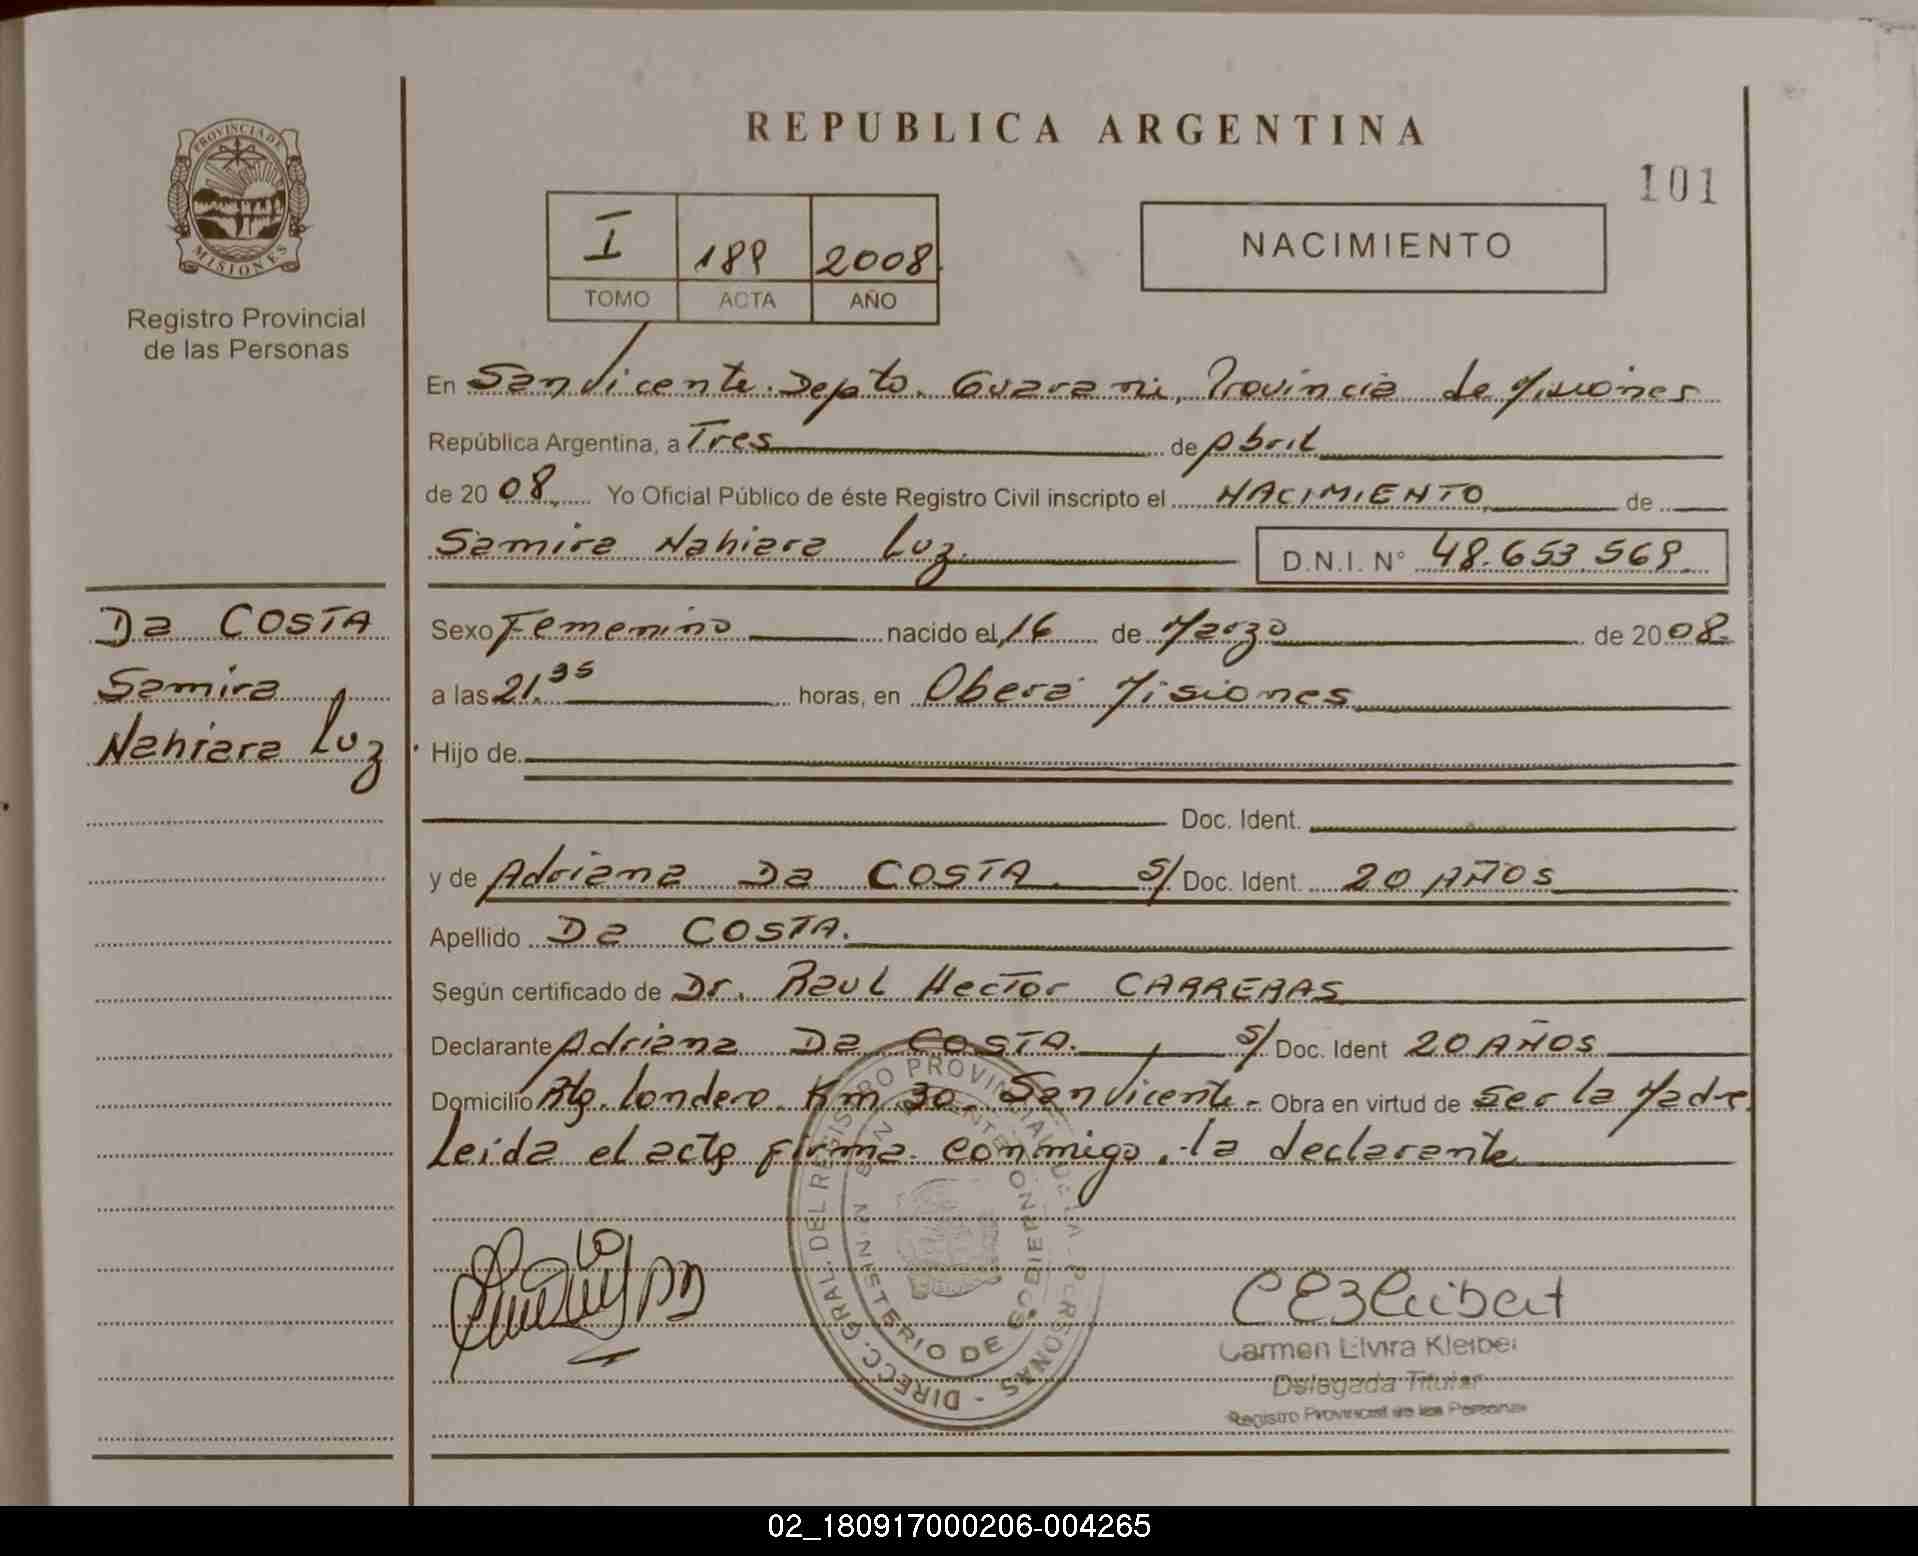 PROVINCIA DE
MISIONES
Registro Provincial
de las Personas
Da COSTA
Samira
Nahiara Luz
REPUBLICA ARGENTINA
101
I 189 2008
TOMO ACTA AÑO
NACIMIENTO
En San Vicente. Depto. Guarani, Provincia de Misiones
República Argentina, a Tres de Abril
de 2008. Yo Oficial Público de éste Registro Civil inscripto el NACIMIENTO de
Samira Nahiara Luz. D.N.I. N° 48.653.569.
Sexo Femenino nacido el 16 de Marzo de 2008.
a las 21.35 horas, en Oberá Misiones
Hijo de
Doc. Ident.
y de Adriana Da COSTA. S/ Doc. Ident. 20 AÑOS
Apellido Da COSTA.
Según certificado de Dr. Raul Hector CARRERAS
Declarante Adriana Da COSTA. S/ Doc. Ident 20 AÑOS
Domicilio Londero Km 30. San Vicente- Obra en virtud de ser la Madre
Leida el acta firma conmigo, la declarante
DIRECC. GRAL. DEL REGISTRO PROVINCIAL DE LA PERSONAS -
MINISTERIO DE GOBIERNO
SAN VICENTE
Carmen Elvira Kleiber
Delegada Titular
Registro Provincial de las Personas
02_180917000206-004265